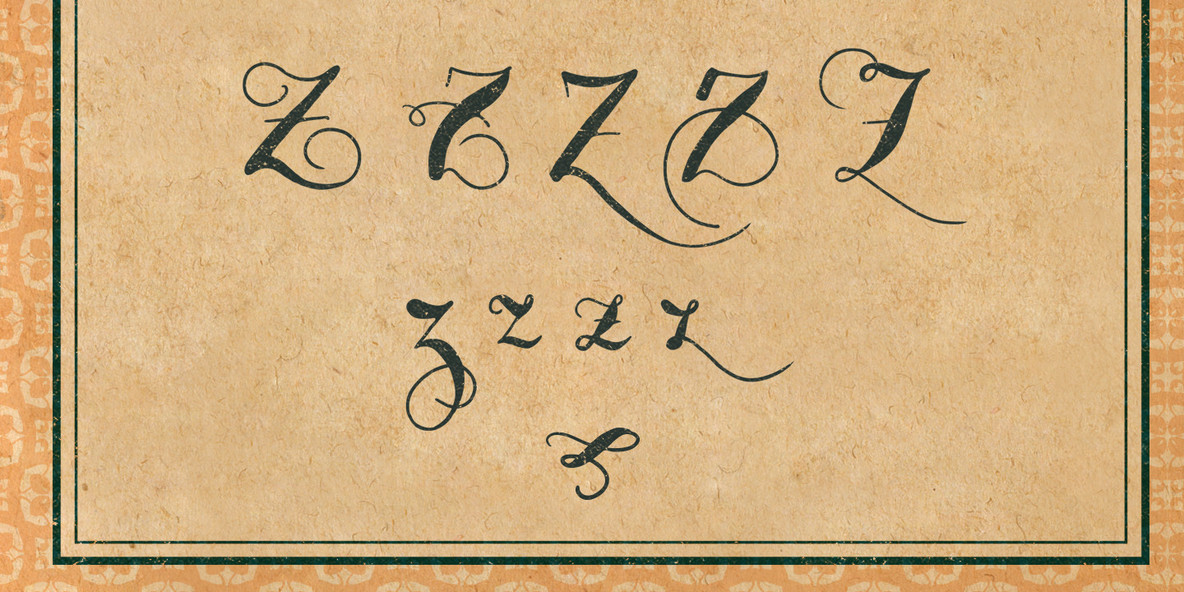 Z Z Z Z Z
z z z z